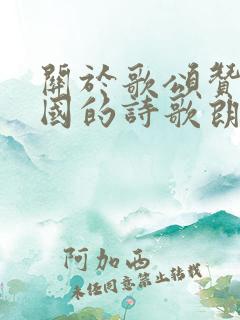 關於歌頌贊
國的詩歌朗
阿加西
未經同意禁止轉載